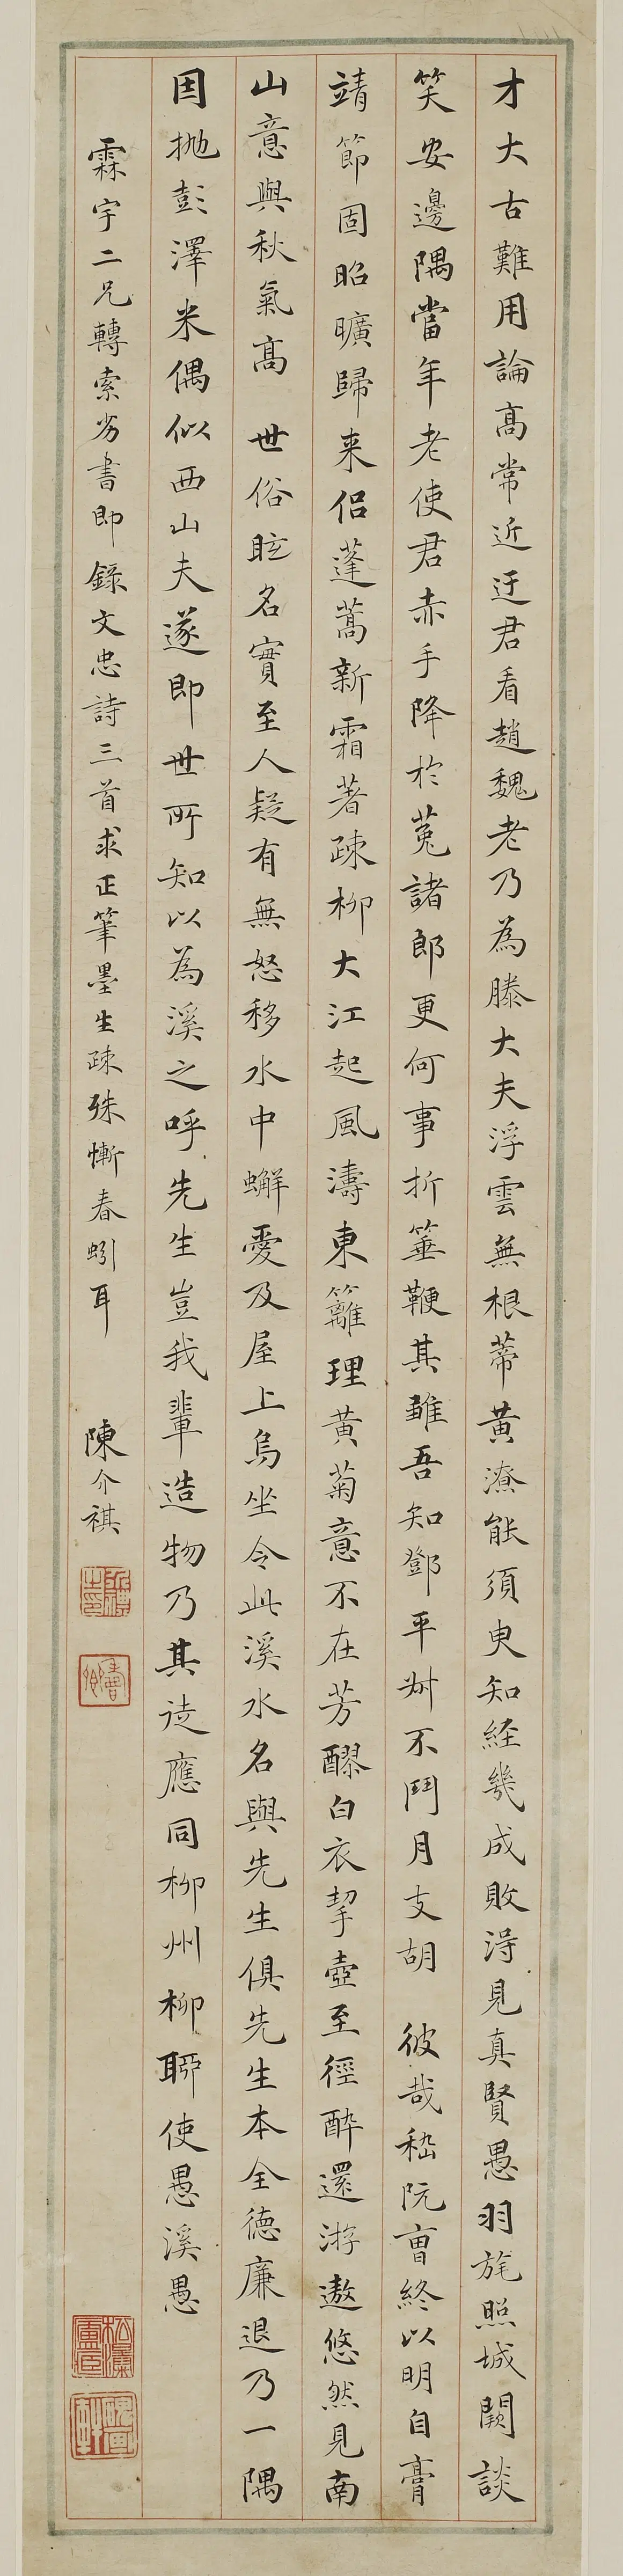 才大古難用論高常近迂君看趙魏老乃為滕大夫浮雲無根蒂黃潦能須臾知経幾成敗淂見真賢愚羽旄照城闕談
笑安邊隅當年老使君赤手降於菟諸郎更何事折箠鞭其雛吾知鄧平州不鬥月支胡 彼哉嵇阮曹終以明自膏
靖節固昭曠歸来侶蓬蒿新霜著疎柳大江起風濤東籬理黃菊意不在芳醪白衣挈壺至徑醉還游遨悠然見南
山意與秋氣高 世俗眩名實至人疑有無怒移水中蠏愛及屋上烏坐令此溪水名與先生俱先生本全德廉退乃一隅
因抛彭澤米偶似西山夫遂即世所知以為溪之呼先生豈我輩造物乃其徒應同柳州柳聊使愚溪愚
霖宇二兄轉索劣書即錄文忠詩三首求正筆墨生疎殊慚春蚓耳 陳介祺